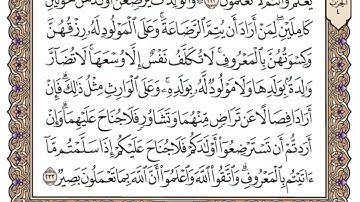 يَعْلَمُ وَأَنتُمْ لَا تَعْلَمُونَ ﴿٢٣٢﴾ ۞ وَٱلْوَٰلِدَٰتُ يُرْضِعْنَ أَوْلَٰدَهُنَّ حَوْلَيْنِ
كَامِلَيْنِ ۖ لِمَنْ أَرَادَ أَن يُتِمَّ ٱلرَّضَاعَةَ ۚ وَعَلَى ٱلْمَوْلُودِ لَهُۥ رِزْقُهُنَّ
وَكِسْوَتُهُنَّ بِٱلْمَعْرُوفِ ۚ لَا تُكَلَّفُ نَفْسٌ إِلَّا وُسْعَهَا ۚ لَا تُضَآرَّ
وَٰلِدَةٌۢ بِوَلَدِهَا وَلَا مَوْلُودٌ لَّهُۥ بِوَلَدِهِۦ ۚ وَعَلَى ٱلْوَارِثِ مِثْلُ ذَٰلِكَ ۗ فَإِنْ
أَرَادَا فِصَالًا عَن تَرَاضٍ مِّنْهُمَا وَتَشَاوُرٍ فَلَا جُنَاحَ عَلَيْهِمَا ۗ وَإِنْ
أَرَدتُّمْ أَن تَسْتَرْضِعُوٓا۟ أَوْلَٰدَكُمْ فَلَا جُنَاحَ عَلَيْكُمْ إِذَا سَلَّمْتُم مَّآ
ءَاتَيْتُم بِٱلْمَعْرُوفِ ۗ وَٱتَّقُوا۟ ٱللَّهَ وَٱعْلَمُوٓا۟ أَنَّ ٱللَّهَ بِمَا تَعْمَلُونَ بَصِيرٌ ﴿٢٣٣﴾